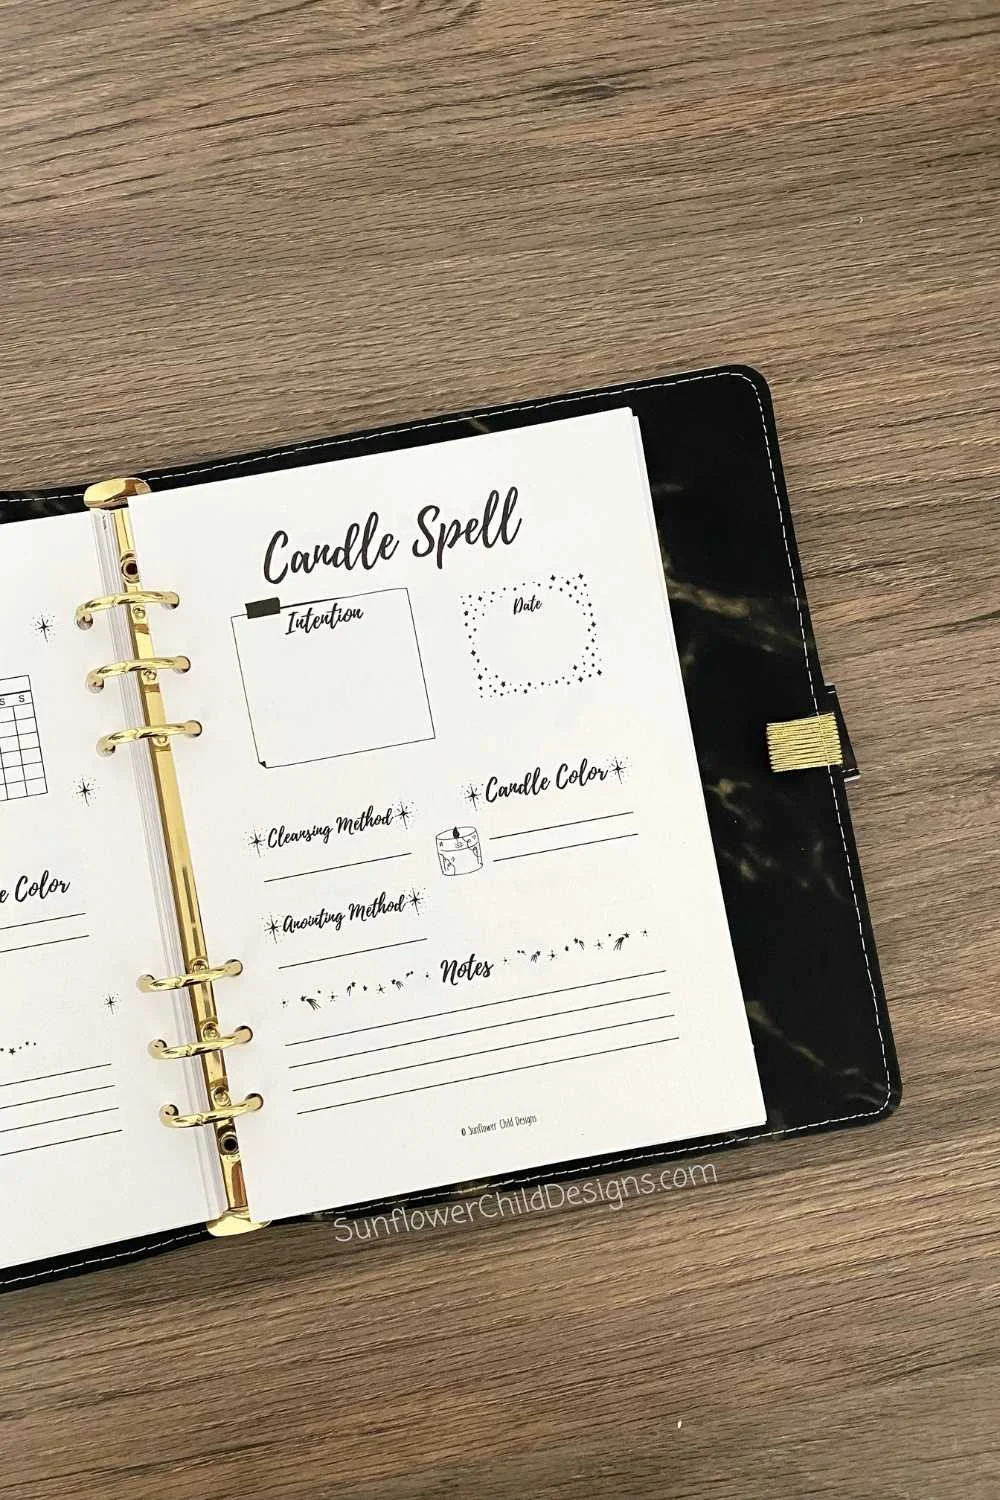 S S
e Color
Candle Spell
Intention
Date
Candle Color
Cleansing Method
Anointing Method
Notes
© Sunflower Child Designs
SunflowerChildDesigns.com